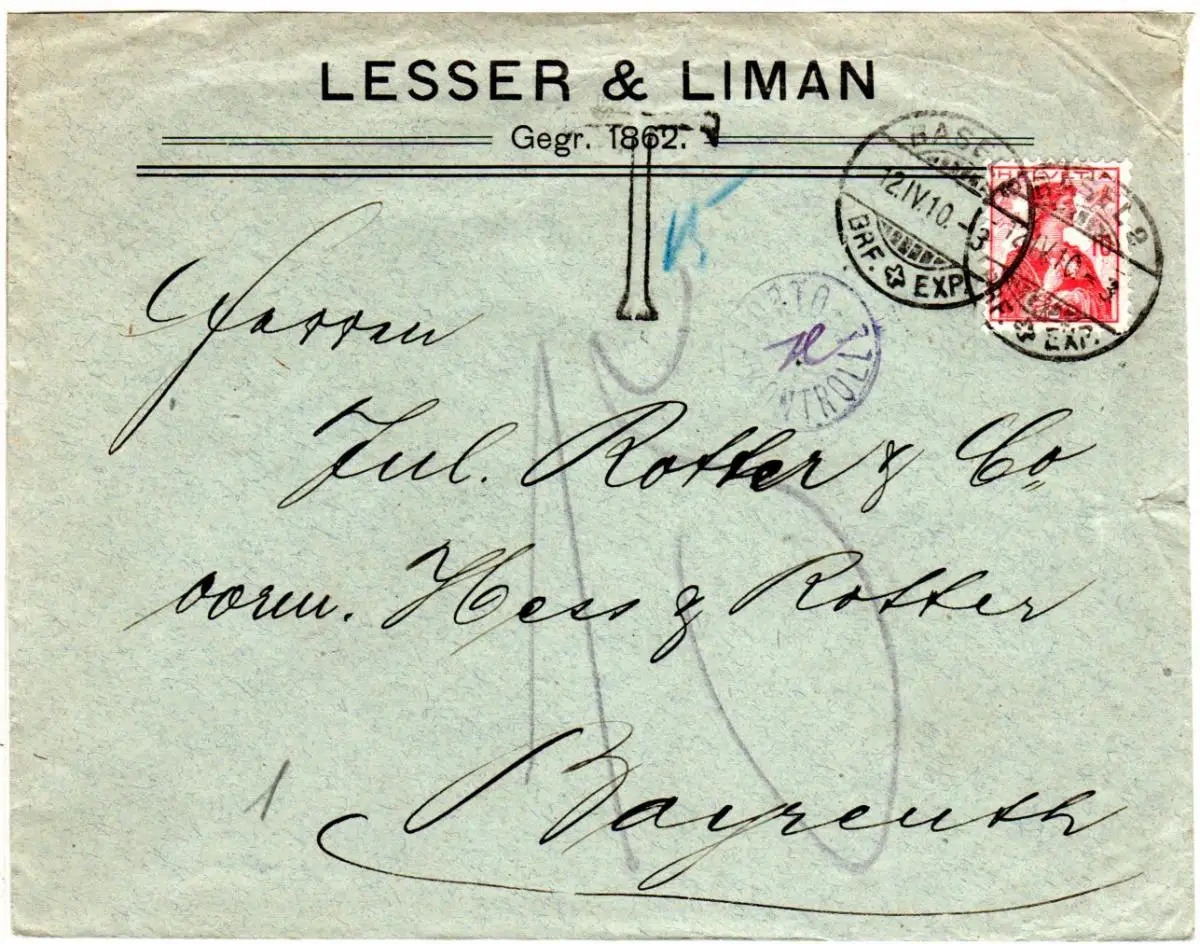 LESSER & LIMAN
Gegr. 1862.
T
15
BASEL 2
12.IV.10.-3
BRF. EXP.
HELVETIA
10
BASEL 2
12.IV.10.-3
BRF. EXP.
PORTO
KONTROLLE
Herren
Jul. Rotter & Co,
vorm. Hess & Rotter
Bayreuth
15
1